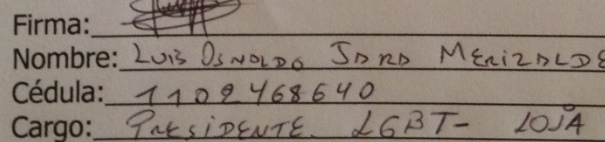 Firma:
Nombre: LUIS OSWALDO JARA MERIZALDE
Cédula: 1102468640
Cargo: PRESIDENTE. LGBT- LOJA